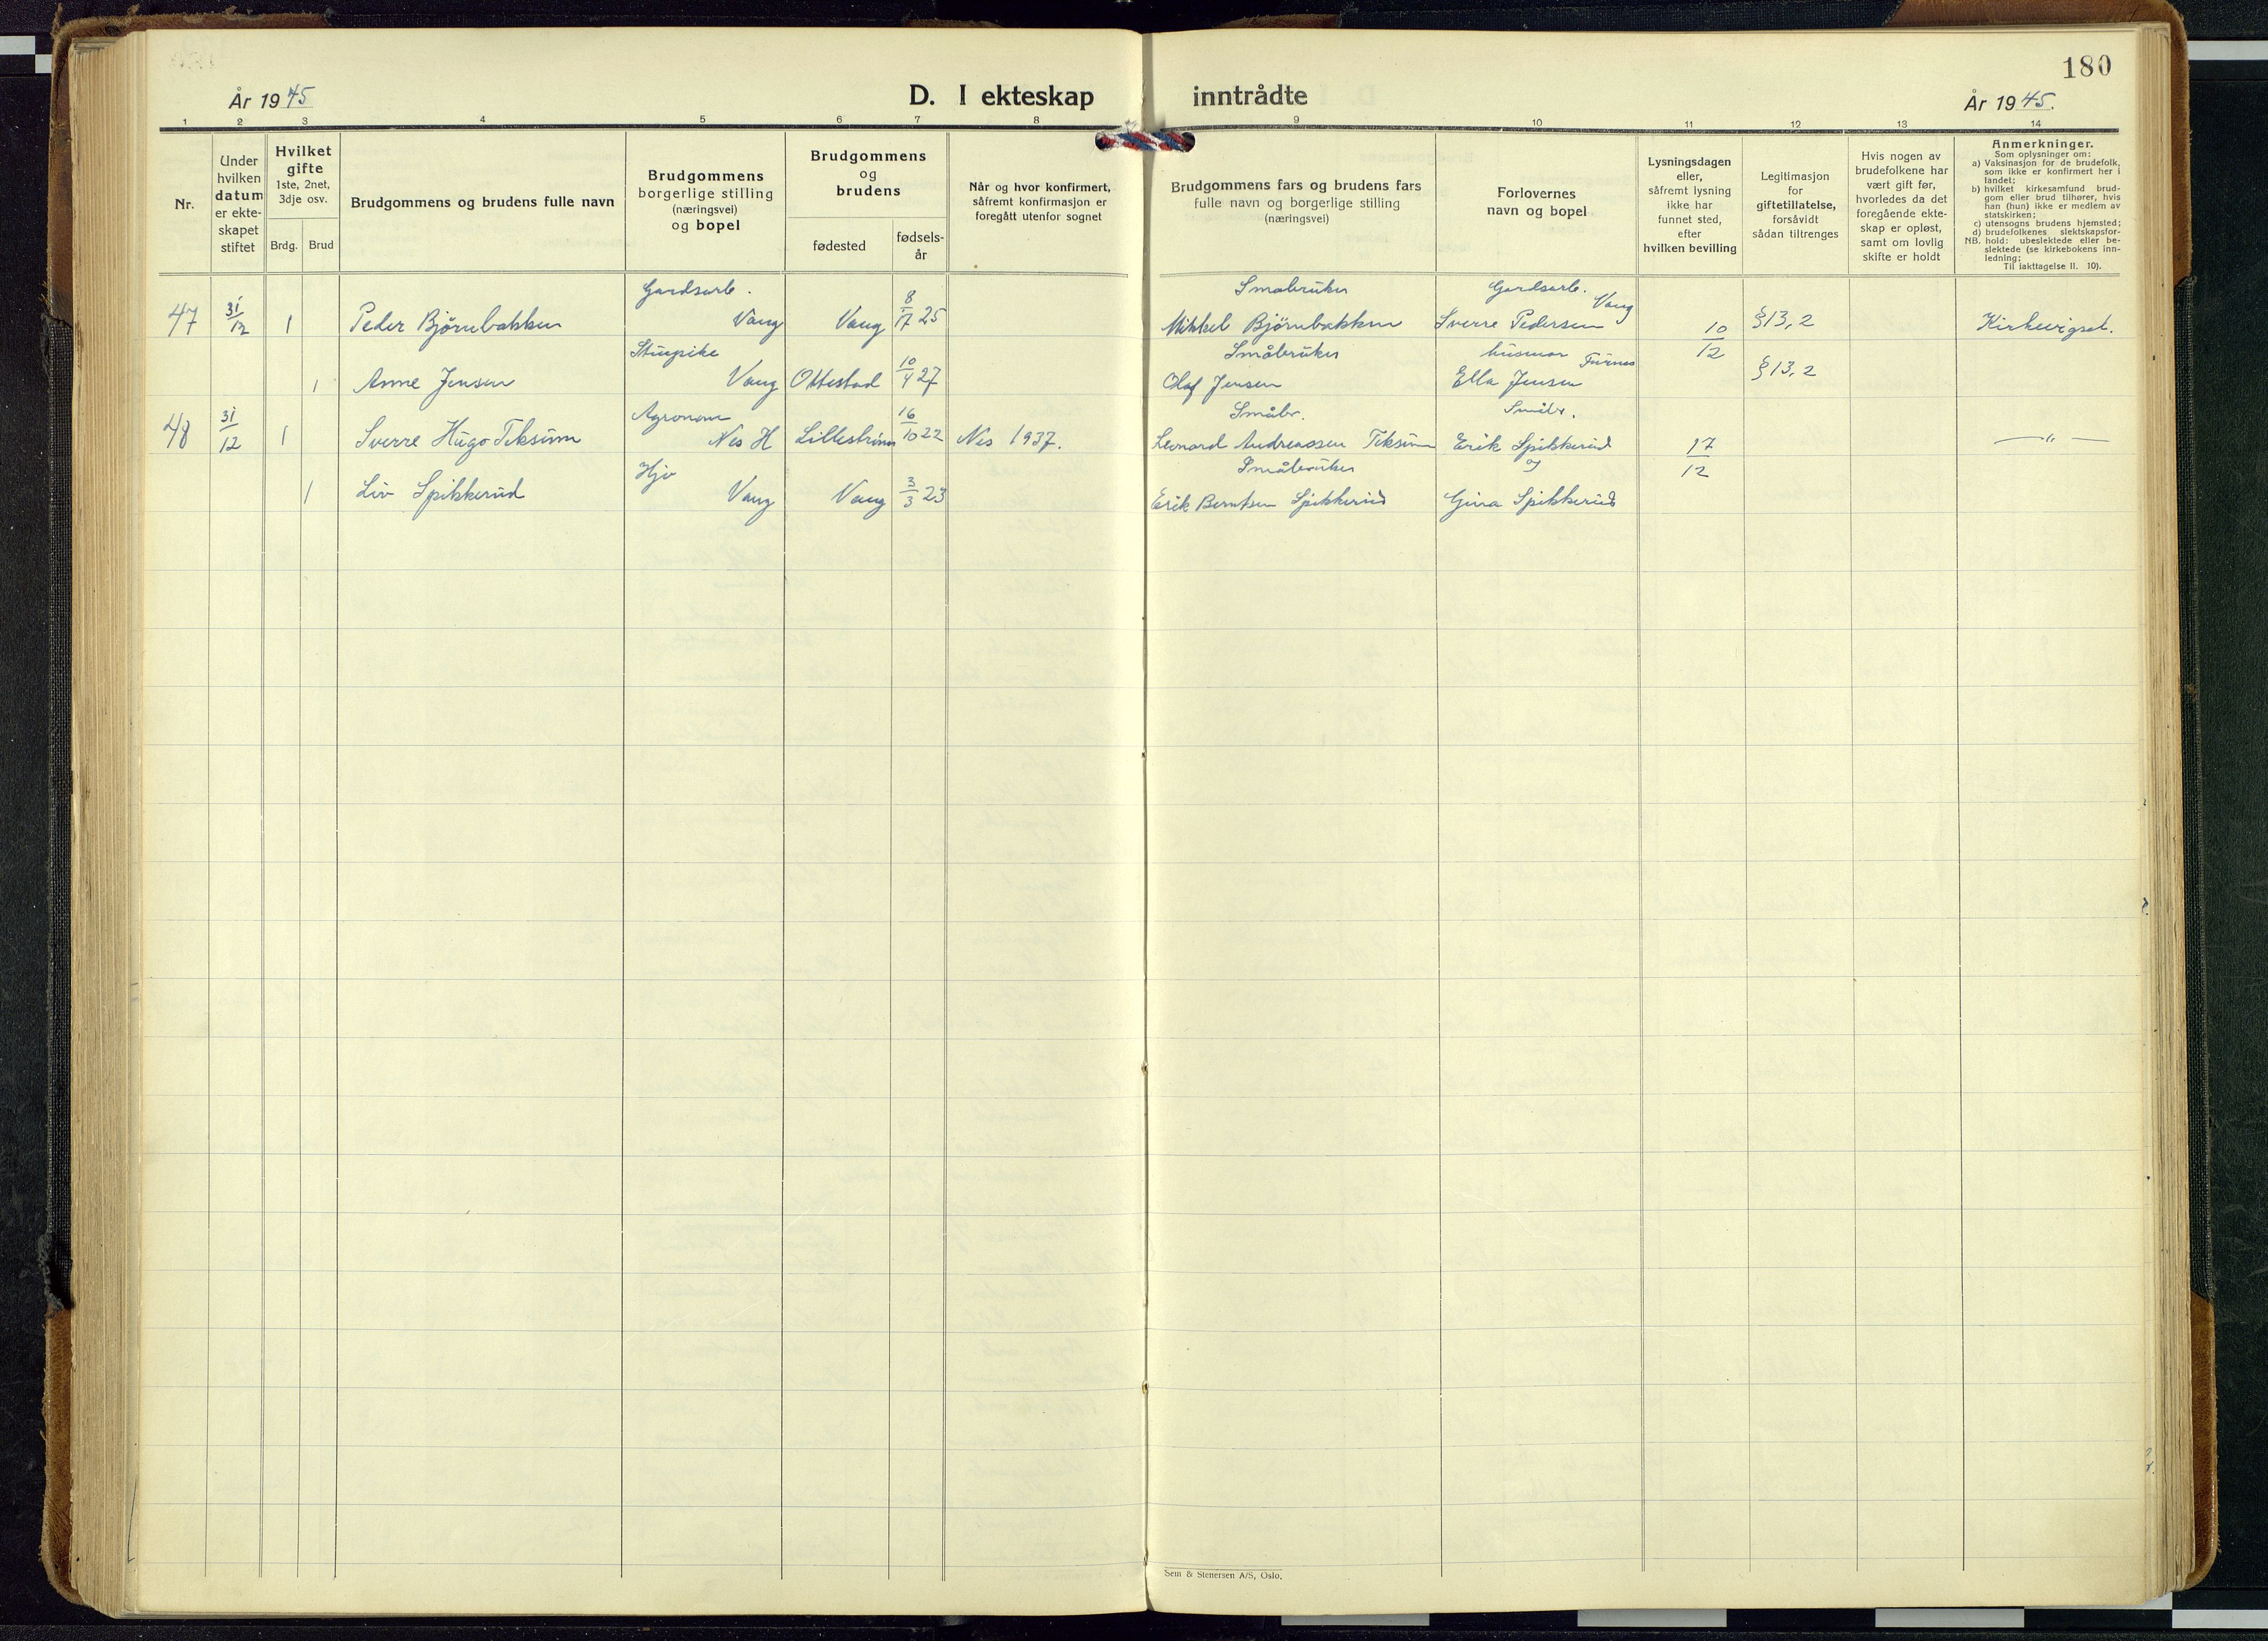 180
År 1945
D. I ekteskap inntrådte
År 1945.
1 2 3 4 5 6 7 8 9 10 11 12 13 14
Nr.
Under
hvilken
datum
er ekte-
skapet
stiftet
Hvilket
gifte
1ste, 2net,
3dje osv.
Brdg. Brud
Brudgommens og brudens fulle navn
Brudgommens
borgerlige stilling
(næringsvei)
og bopel
Brudgommens
og
brudens
fødested
fødsels-
år
Når og hvor konfirmert,
såfremt konfirmasjon er
foregått utenfor sognet
Brudgommens fars og brudens fars
fulle navn og borgerlige stilling
(næringsvei)
Forlovernes
navn og bopel
Lysningsdagen
eller,
såfremt lysning
ikke har
funnet sted,
efter
hvilken bevilling
Legitimasjon
for
giftetillatelse,
forsåvidt
sådan tiltrenges
Hvis nogen av
brudefolkene har
vært gift før,
hvorledes da det
foregående ekte-
skap er opløst,
samt om lovlig
skifte er holdt
Anmerkninger.
Som oplysninger om:
a) Vaksinasjon for de brudefolk,
som ikke er konfirmert her i
landet;
b) hvilket kirkesamfund brud-
gom eller brud tilhører, hvis
han (hun) ikke er medlem av
statskirken;
c) utensogns brudens hjemsted;
d) brudefolkenes slektskapsfor-
NB. hold: ubeslektede eller be-
slektede (se kirkebokens inn-
ledning;
Til iakttagelse II. 10).
Gardsarb. 8 Småbruker Gardsarb. Vang
47 31/12 1 Peder Bjørnbakken Vang Vang 17 25 Mikkel Bjørnbakken Sverre Pedersen 10/12 §13,2 Kirkevigsel.
Stuepike 10 Småbruker husmor Furnes
1 Anne Jensen Vang Ottestad 4 27 Olaf Jensen Ella Jensen §13,2
Agronom 16 Småbr. Småbr.
48 31/12 1 Sverre Hugo Teksum Nes H Lillestrøm 10 22 Nes 1937. Leonard Andreassen Teksum Erik Spikkerud 17/12 — " —
Hjv Småbruker og
1 Liv Spikkerud Vang Vang 3/3 23 Erik Berntsen Spikkerud Gina Spikkerud
Sem & Stenersen A/S, Oslo.